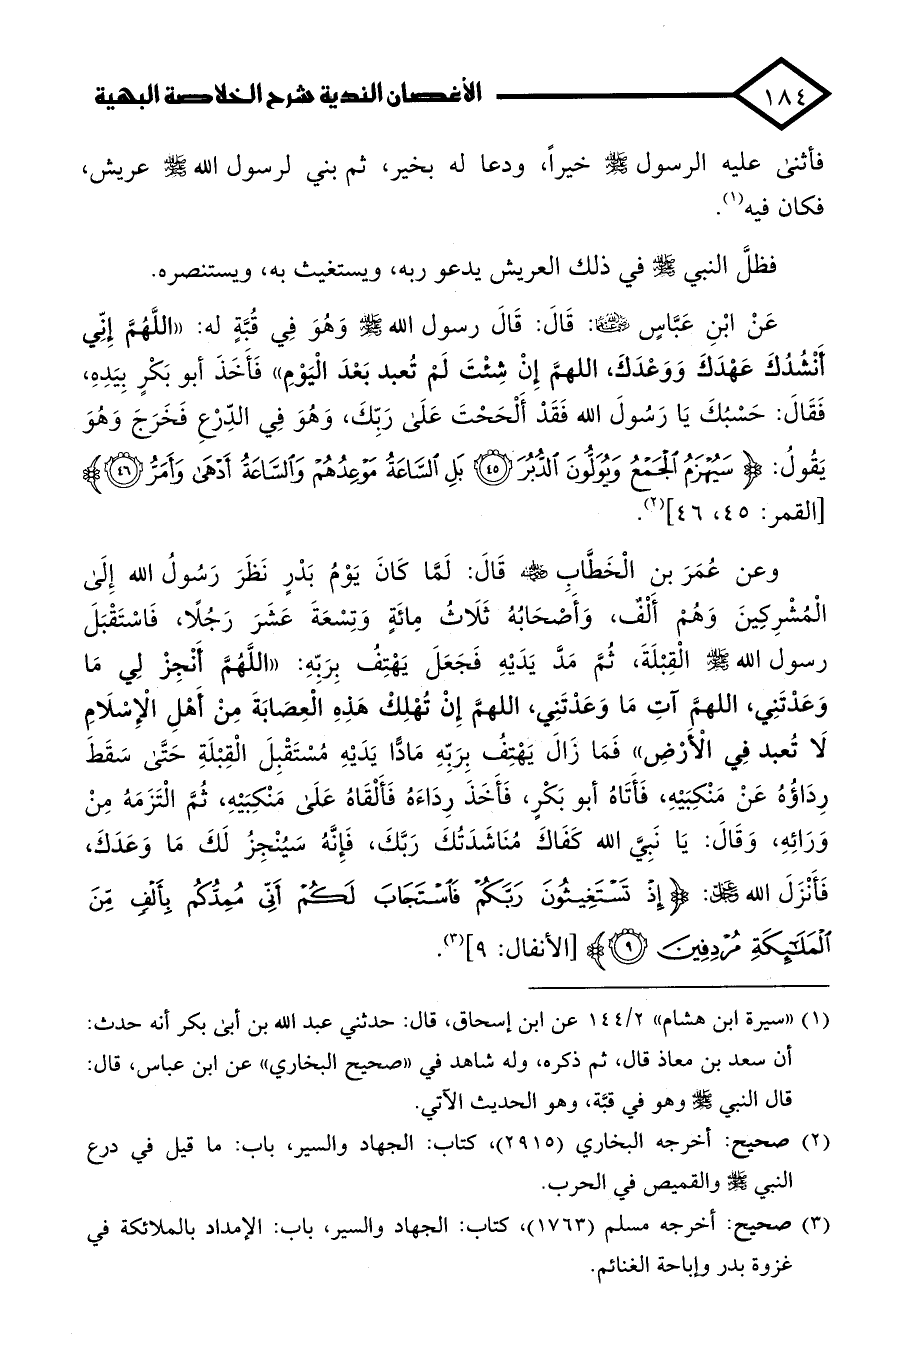 ١٨٤ الأغصان الندية شرح الخلاصة البهية
فأثنىٰ عليه الرسول ﷺ خيراً، ودعا له بخير، ثم بني لرسول الله ﷺ عريش،
فكان فيه(١).
فظلَّ النبي ﷺ في ذلك العريش يدعو ربه، ويستغيث به، ويستنصره.
عَنْ ابْنِ عَبَّاسٍ رضي الله عنهما: قَالَ: قَالَ رسول الله ﷺ وَهُوَ فِي قُبَّةٍ له: «اللَّهُمَّ إِنِّي
أَنْشُدُكَ عَهْدَكَ وَوَعْدَكَ، اللهم إِنْ شِئْتَ لَمْ تُعبد بَعْدَ الْيَوْمِ» فَأَخَذَ أبو بَكْرٍ بِيَدِهِ،
فَقَالَ: حَسْبُكَ يَا رَسُولَ الله فَقَدْ أَلْحَحْتَ عَلَىٰ رَبِّكَ، وَهُوَ فِي الدِّرْعِ فَخَرَجَ وَهُوَ
يَقُولُ: ﴿ سَيُهْزَمُ ٱلْجَمْعُ وَيُوَلُّونَ ٱلدُّبُرَ ٤٥ بَلِ ٱلسَّاعَةُ مَوْعِدُهُمْ وَٱلسَّاعَةُ أَدْهَىٰ وَأَمَرُّ ٤٦ ﴾
[القمر: ٤٥، ٤٦](٢).
وعن عُمَرَ بن الْخَطَّابِ رضي الله عنه قَالَ: لَمَّا كَانَ يَوْمُ بَدْرٍ نَظَرَ رَسُولُ الله إِلَىٰ
الْمُشْرِكِينَ وَهُمْ أَلْفٌ، وَأَصْحَابُهُ ثَلَاثُ مِائَةٍ وَتِسْعَةَ عَشَرَ رَجُلًا، فَاسْتَقْبَلَ
رسول الله ﷺ الْقِبْلَةَ، ثُمَّ مَدَّ يَدَيْهِ فَجَعَلَ يَهْتِفُ بِرَبِّهِ: «اللَّهُمَّ أَنْجِزْ لِي مَا
وَعَدْتَنِي، اللهمَّ آتِ مَا وَعَدْتَنِي، اللهم إِنْ تُهْلِكْ هَذِهِ الْعِصَابَةَ مِنْ أَهْلِ الْإِسْلَامِ
لَا تُعبد فِي الْأَرْضِ» فَمَا زَالَ يَهْتِفُ بِرَبِّهِ مَادًّا يَدَيْهِ مُسْتَقْبِلَ الْقِبْلَةِ حَتَّىٰ سَقَطَ
رِدَاؤُهُ عَنْ مَنْكِبَيْهِ، فَأَتَاهُ أبو بَكْرٍ، فَأَخَذَ رِدَاءَهُ فَأَلْقَاهُ عَلَىٰ مَنْكِبَيْهِ، ثُمَّ الْتَزَمَهُ مِنْ
وَرَائِهِ، وَقَالَ: يَا نَبِيَّ الله كَفَاكَ مُنَاشَدَتُكَ رَبَّكَ، فَإِنَّهُ سَيُنْجِزُ لَكَ مَا وَعَدَكَ،
فَأَنْزَلَ الله عز وجل: ﴿ إِذْ تَسْتَغِيثُونَ رَبَّكُمْ فَٱسْتَجَابَ لَكُمْ أَنِّي مُمِدُّكُم بِأَلْفٍ مِّنَ
ٱلْمَلَٰٓئِكَةِ مُرْدِفِينَ ٩ ﴾ [الأنفال: ٩](٣).
(١) «سيرة ابن هشام» ١٤٤/٢ عن ابن إسحاق، قال: حدثني عبد الله بن أبىٰ بكر أنه حدث:
أن سعد بن معاذ قال، ثم ذكره، وله شاهد في «صحيح البخاري» عن ابن عباس، قال:
قال النبي ﷺ وهو في قبَّة، وهو الحديث الآتي.
(٢) صحيح: أخرجه البخاري (٢٩١٥)، كتاب: الجهاد والسير، باب: ما قيل في درع
النبي ﷺ والقميص في الحرب.
(٣) صحيح: أخرجه مسلم (١٧٦٣)، كتاب: الجهاد والسير، باب: الإمداد بالملائكة في
غزوة بدر وإباحة الغنائم.